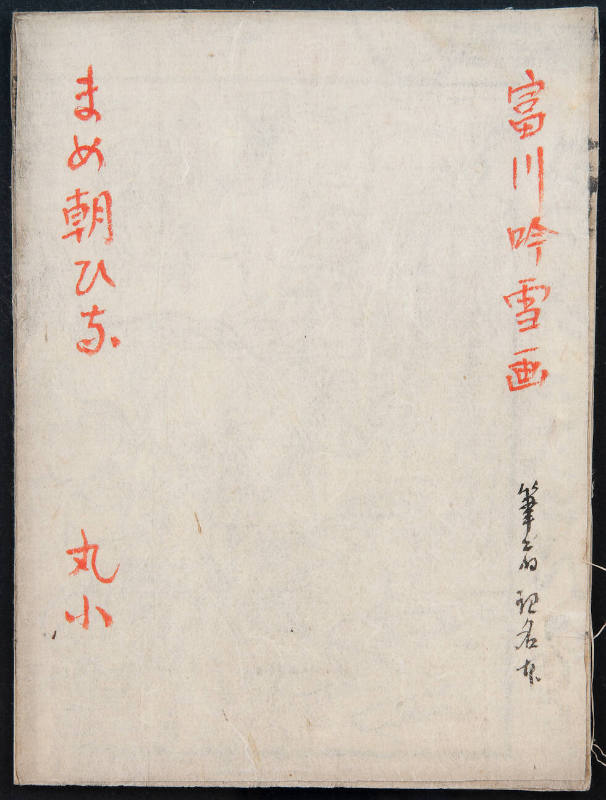 富川吟雪画
筆 記名本
まめ朝ひな
丸小